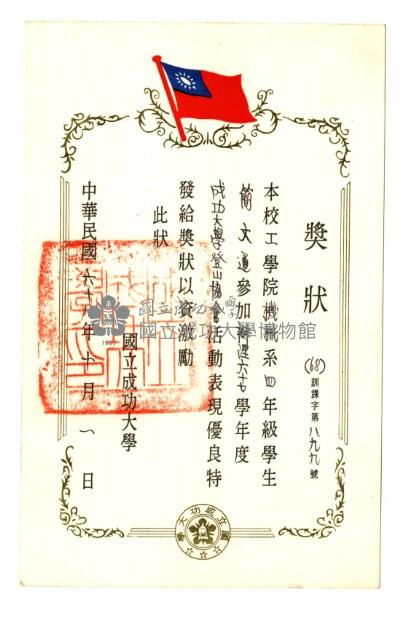 獎狀
(68)訓課字第八九九號
本校工學院機械系四年級學生
俞文通參加辦理六七學年度
成功大學登山協會活動表現優良特
發給獎狀以資激勵
此狀
國立成功大學
中華民國六十八年十月一日
國立成功大學博物館
國立成功大學